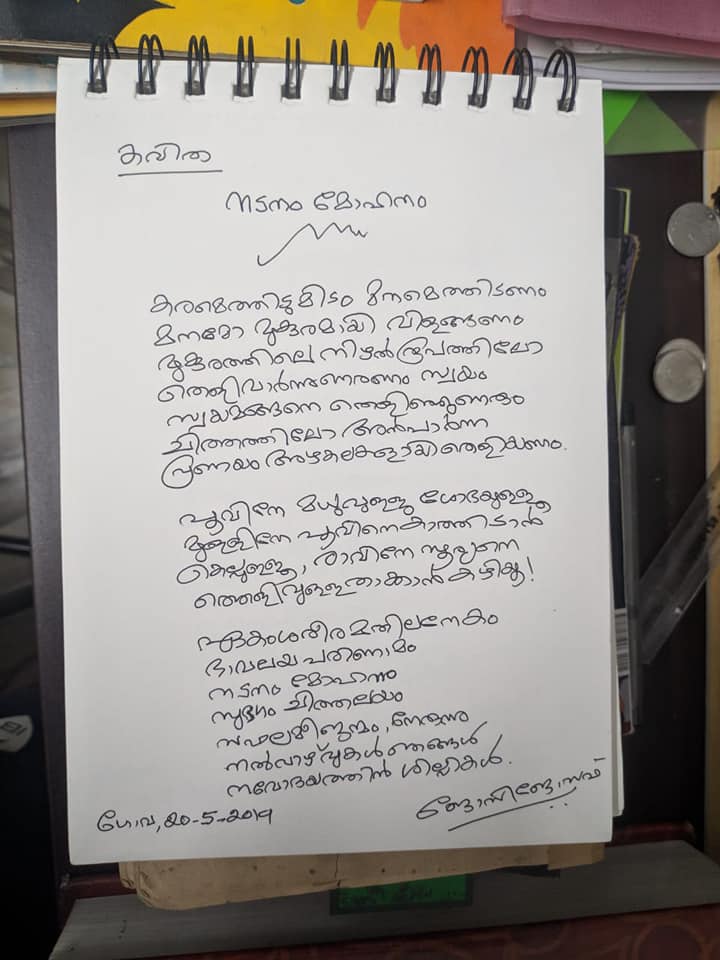 കവിത
നടനം മോഹനം
കരമെത്തിടുമിടം മനമെത്തിടണം
മനമോ മുകുരമായി വിളങ്ങണം
മുകുരത്തിലെ നിഴൽരൂപത്തിലോ
തെളിവാർന്നുണരണം സ്വയം
സ്വയമങ്ങനെ തെളിഞ്ഞുണരും
ചിത്തത്തിലോ അൻപാർന്ന
പ്രണയം അഴകലകളായിതെളിയണം.
പൂവിനേ മധുവുള്ളു ശോഭയുള്ളൂ
മുള്ളിനേ പൂവിനെകാത്തിടാൻ
കെല്പുള്ളൂ, രാവിനേ സൂര്യനെ
തെളിവുള്ളതാക്കാൻ കഴിയൂ!
ഏകംശരീരമതിലനേകം
ഭാവലയ പരിണാമം
നടനം മോഹനം
സുഭഗം ചിത്തലയം
സഫലമീജന്മം, നേരുന്നു
നൽവാഴ്‌വുകൾ ഞങ്ങൾ
നവോദയത്തിൻ ശില്പികൾ.
ഗോവ, 20-5-2019
ജോസിജോസഫ്